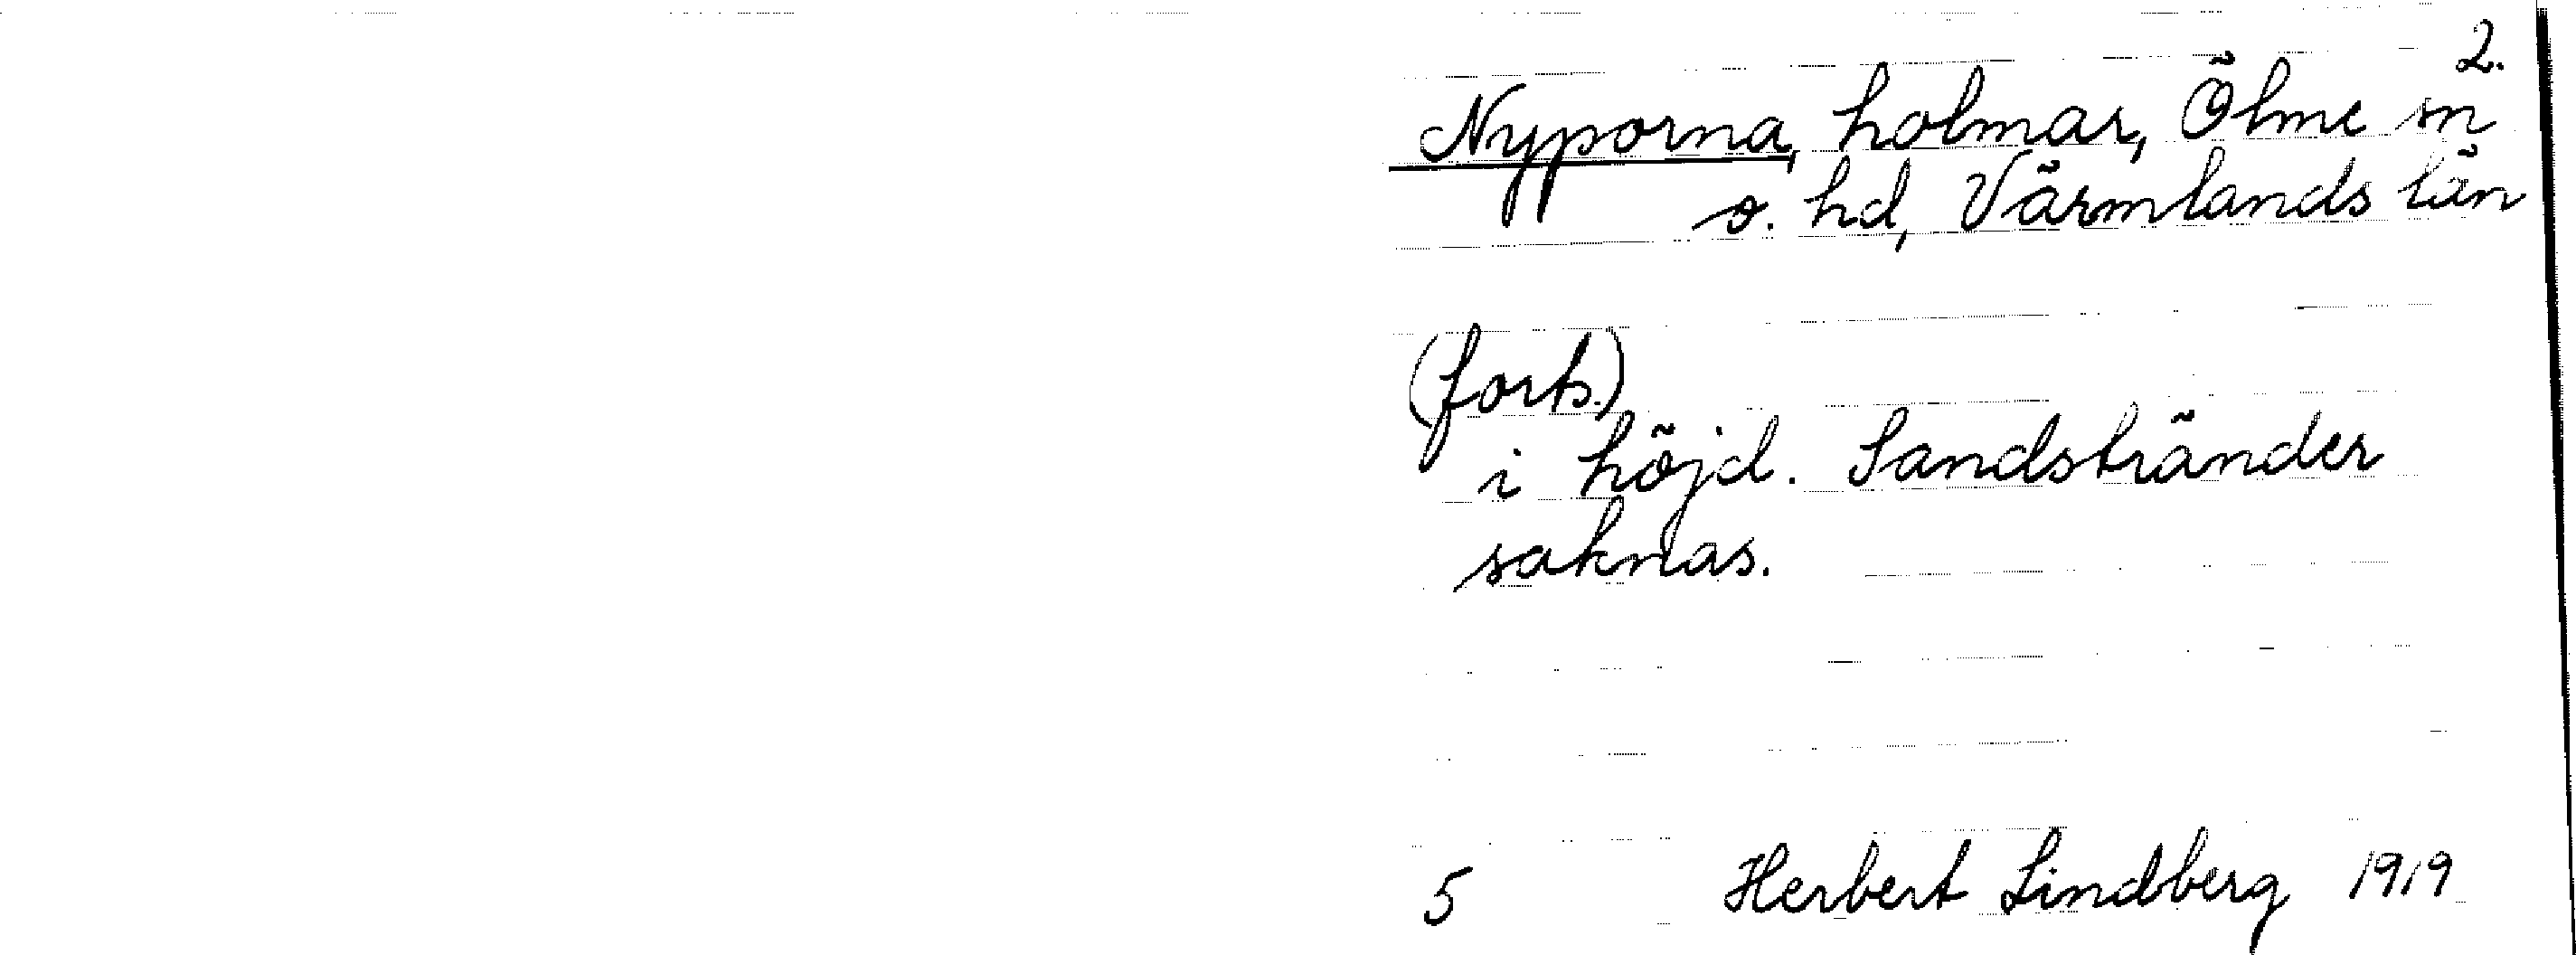 2.
Nyporna, holmar, Ölme sn
o. hd, Värmlands län
(forts.)
i höjd. Sandstränder
saknas.
5 Herbert Lindberg 1919